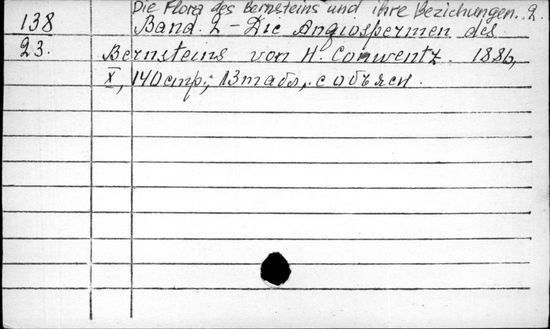 Die Flora des Bernsteins und ihre Beziehungen. 2.
138 Band. 2 - Die Angiospermen des
23. Bernsteins von H. Conwentz. 1886,
X, 140 стр.; 13 табл. с объясн.